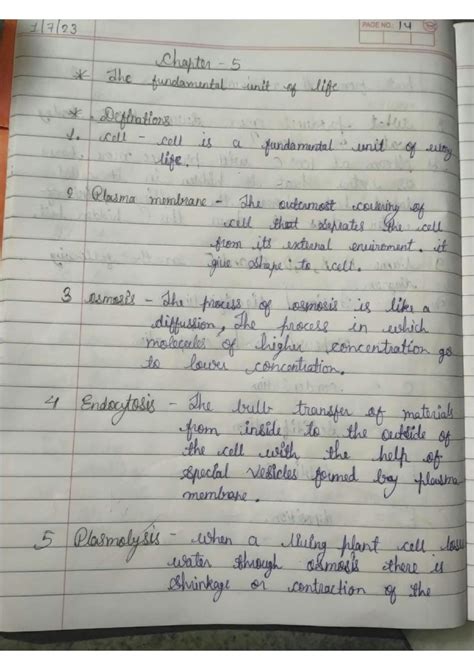 1/7/23 PAGE NO. 14
Chapter - 5
* The fundamental unit of life
* Definations
1. cell - cell is a fundamental unit of every
life.
2 Plasma membrane - The outermost covering of
cell that seprates the cell
from its extrenal enviroment. it
give shape to cell.
3 osmosis - The process of osmosis is like a
diffussion, The process in which
molecules of higher concentration go
to lower concentration.
4 Endocytosis - The bulb transfer of materials
from inside to the outside of
the cell with the help of
special vesicles formed by plasma
membrane.
5 Plasmolysis - when a living plant cell loss
water through osmosis there is
shrinkage or contraction of the